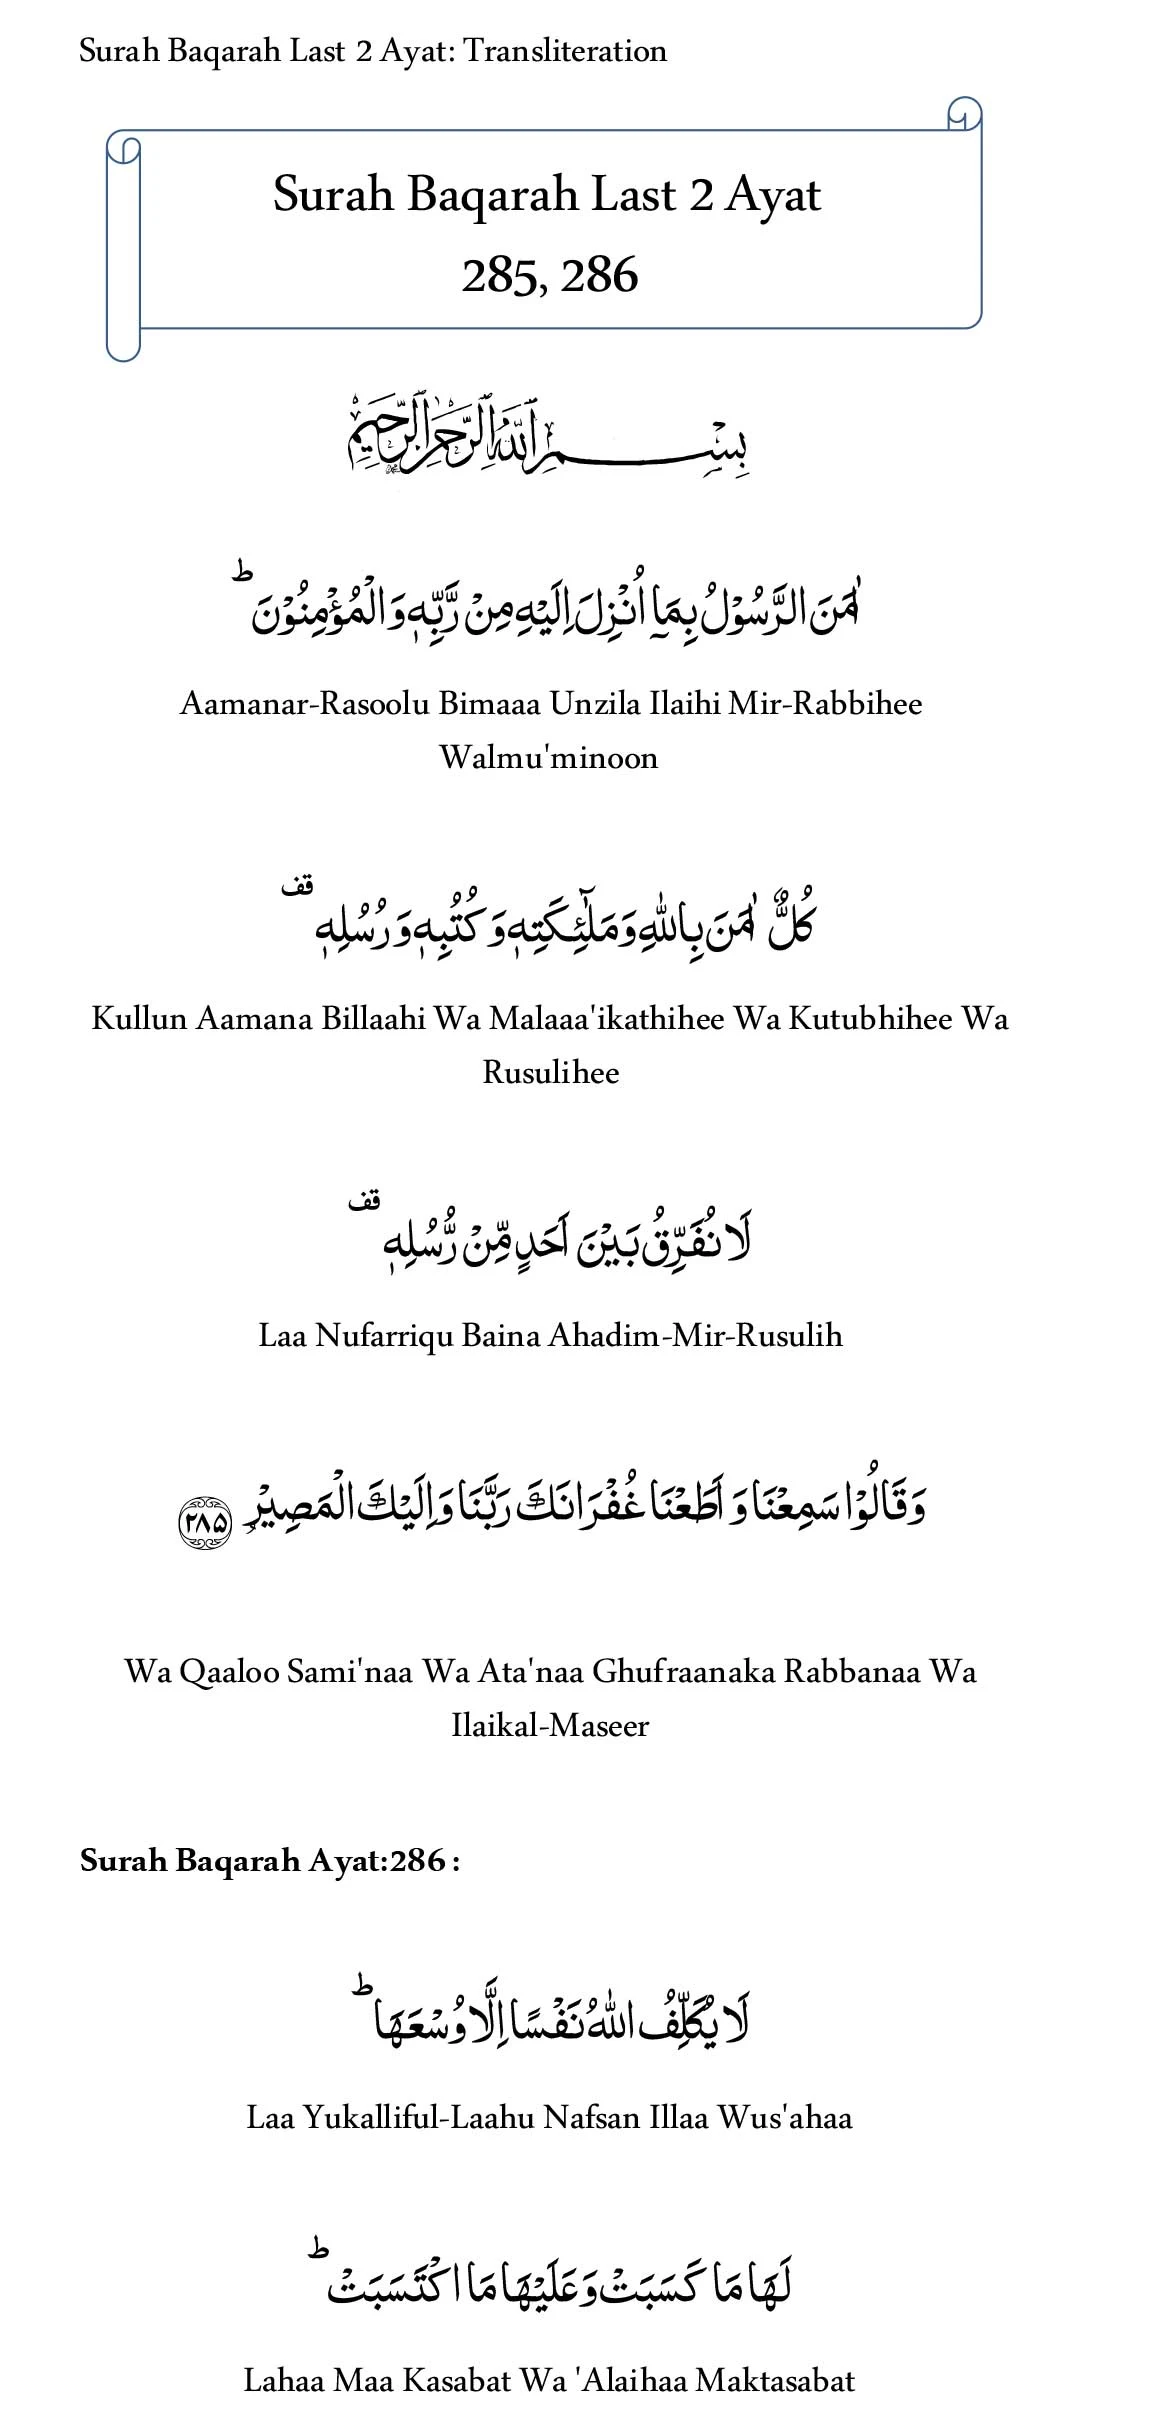 Surah Baqarah Last 2 Ayat: Transliteration
Surah Baqarah Last 2 Ayat
285, 286
بِسْمِ اللّٰهِ الرَّحْمٰنِ الرَّحِيْمِ
اٰمَنَ الرَّسُوْلُ بِمَاۤ اُنْزِلَ اِلَيْهِ مِنْ رَّبِّهٖ وَالْمُؤْمِنُوْنَ ؕ
Aamanar-Rasoolu Bimaaa Unzila Ilaihi Mir-Rabbihee
Walmu'minoon
كُلٌّ اٰمَنَ بِاللّٰهِ وَمَلٰٓئِكَتِهٖ وَكُتُبِهٖ وَرُسُلِهٖ قف
Kullun Aamana Billaahi Wa Malaaa'ikathihee Wa Kutubhihee Wa
Rusulihee
لَا نُفَرِّقُ بَيْنَ اَحَدٍ مِّنْ رُّسُلِهٖ قف
Laa Nufarriqu Baina Ahadim-Mir-Rusulih
وَقَالُوْا سَمِعْنَا وَ اَطَعْنَا غُفْرَانَكَ رَبَّنَا وَاِلَيْكَ الْمَصِيْرُ ۲۸۵
Wa Qaaloo Sami'naa Wa Ata'naa Ghufraanaka Rabbanaa Wa
Ilaikal-Maseer
Surah Baqarah Ayat:286 :
لَا يُكَلِّفُ اللّٰهُ نَفْسًا اِلَّا وُسْعَهَا ؕ
Laa Yukalliful-Laahu Nafsan Illaa Wus'ahaa
لَهَا مَا كَسَبَتْ وَعَلَيْهَا مَا اكْتَسَبَتْ ؕ
Lahaa Maa Kasabat Wa 'Alaihaa Maktasabat